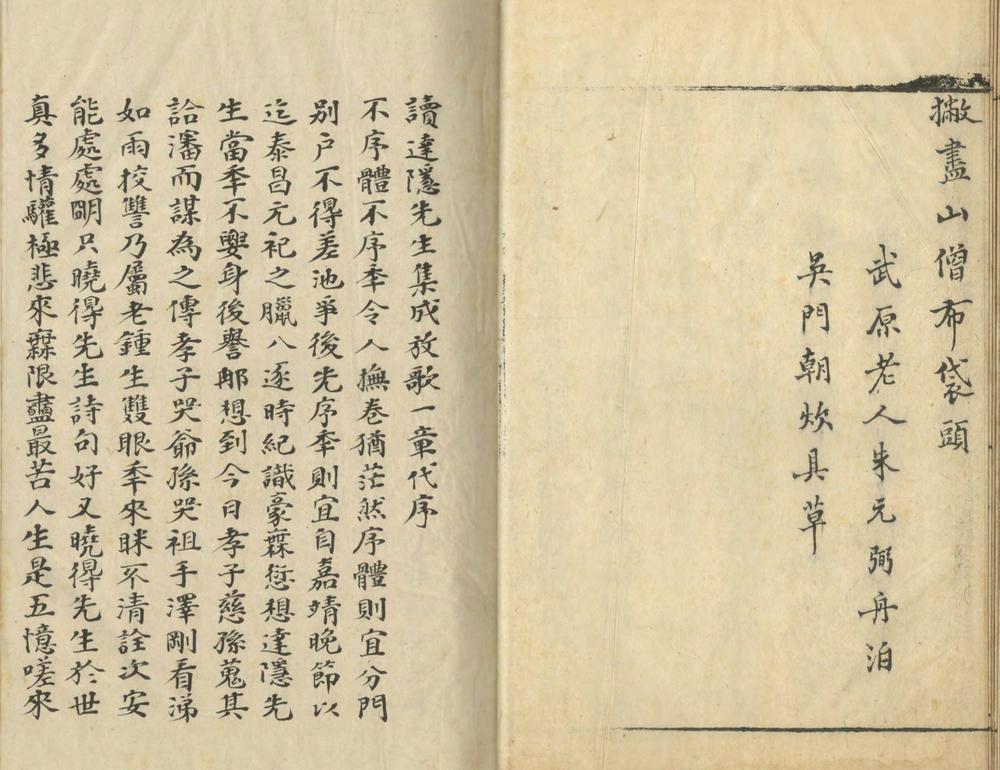 撇盡山僧布袋頭
武原老人朱元弼舟泊
吳門朝炊具草
讀達隱先生集成放歌一章代序
不序體不序秊令人撫卷猶茫然序體則宜分門
別戶不得差池爭後先序秊則宜自嘉靖晚節以
迄泰昌元祀之臘八逐時紀識豪霖愆想達隱先
生當秊不嬰身後譽那想到今日孝子慈孫蒐其
詒瀋而謀為之傳孝子哭爺孫哭祖手澤剛看涕
如雨挍讐乃屬老鍾生雙眼秊來眯不清詮次安
能處處朙只曉得先生詩句好又曉得先生於世
真多情驩極悲來霖限盡最苦人生是五憶嗟來